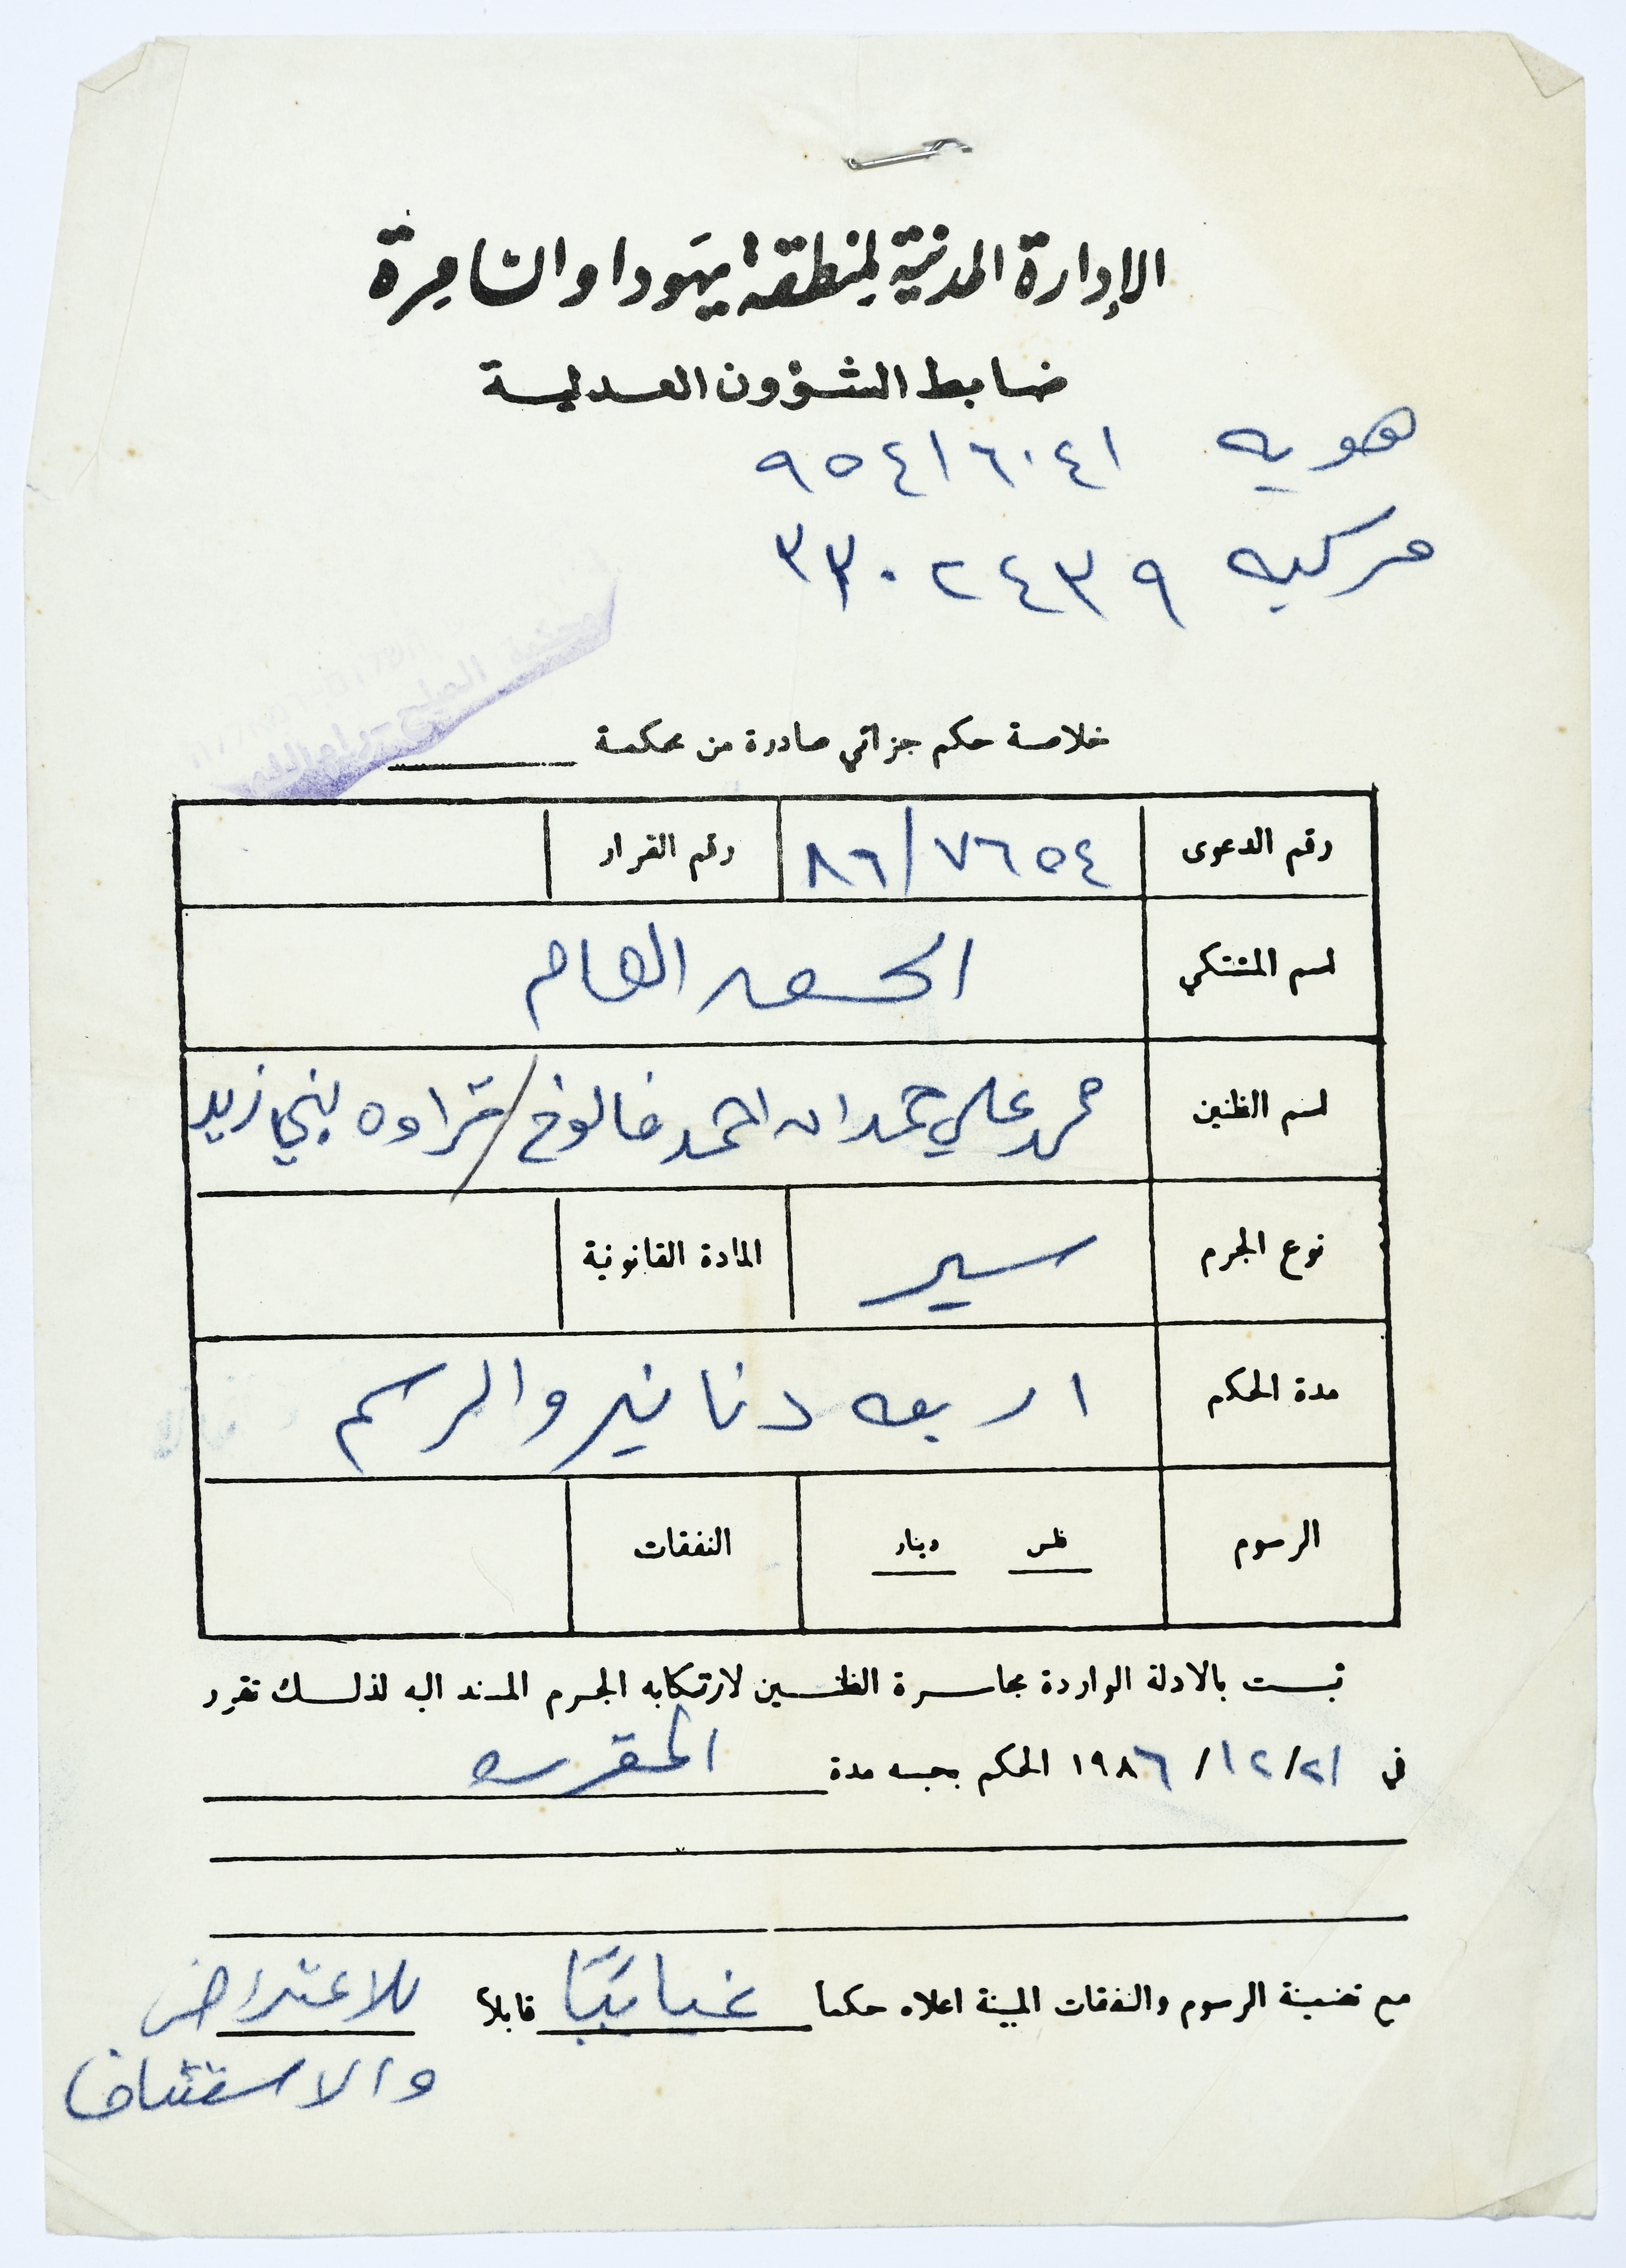 الإدارة المدنية لمنطقة يهودا والسامرة
ضابط الشؤون العدلية
هويه ٩٥٤١٦٠٤١
مركبه ٣٣٠٢٤٣٩
محكمة الصلح رام الله
خلاصة حكم جزائي صادرة من محكمة
رقم الدعوى ٧٦٥٤/٨٦ رقم القرار
اسم المشتكي الحق العام
اسم الظنين محمد علي حمدان احمد فالوخ / قراوه بني زيد
نوع الجرم سير المادة القانونية
مدة الحكم اربعه دنانير والرسم
الرسوم فلس دينار النفقات
ثبت بالادلة الواردة مجاسرة الظنين لارتكابه الجرم المسند اليه لذلك تقرر
في ٢١/ ١٢/ ١٩٨٦ الحكم بحبسه مدة المقرره
مع تضمينة الرسوم والنفقات المبينة اعلاه حكماً غيابيًا قابلاً للاعتراض
والاستئناف